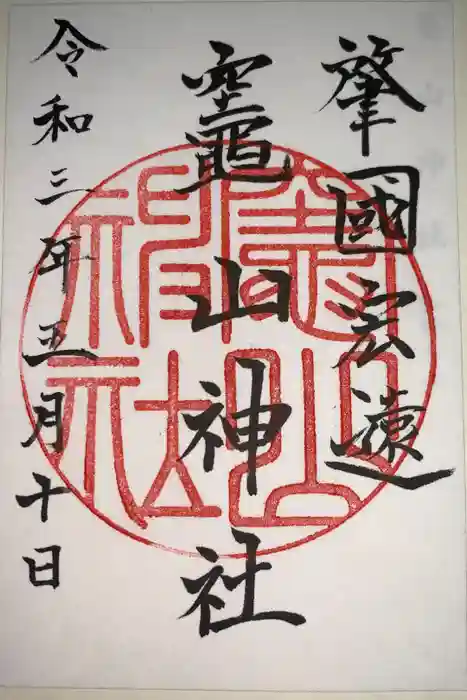 肇國宏遠
竈山神社
令和三年五月十日
竈山神社